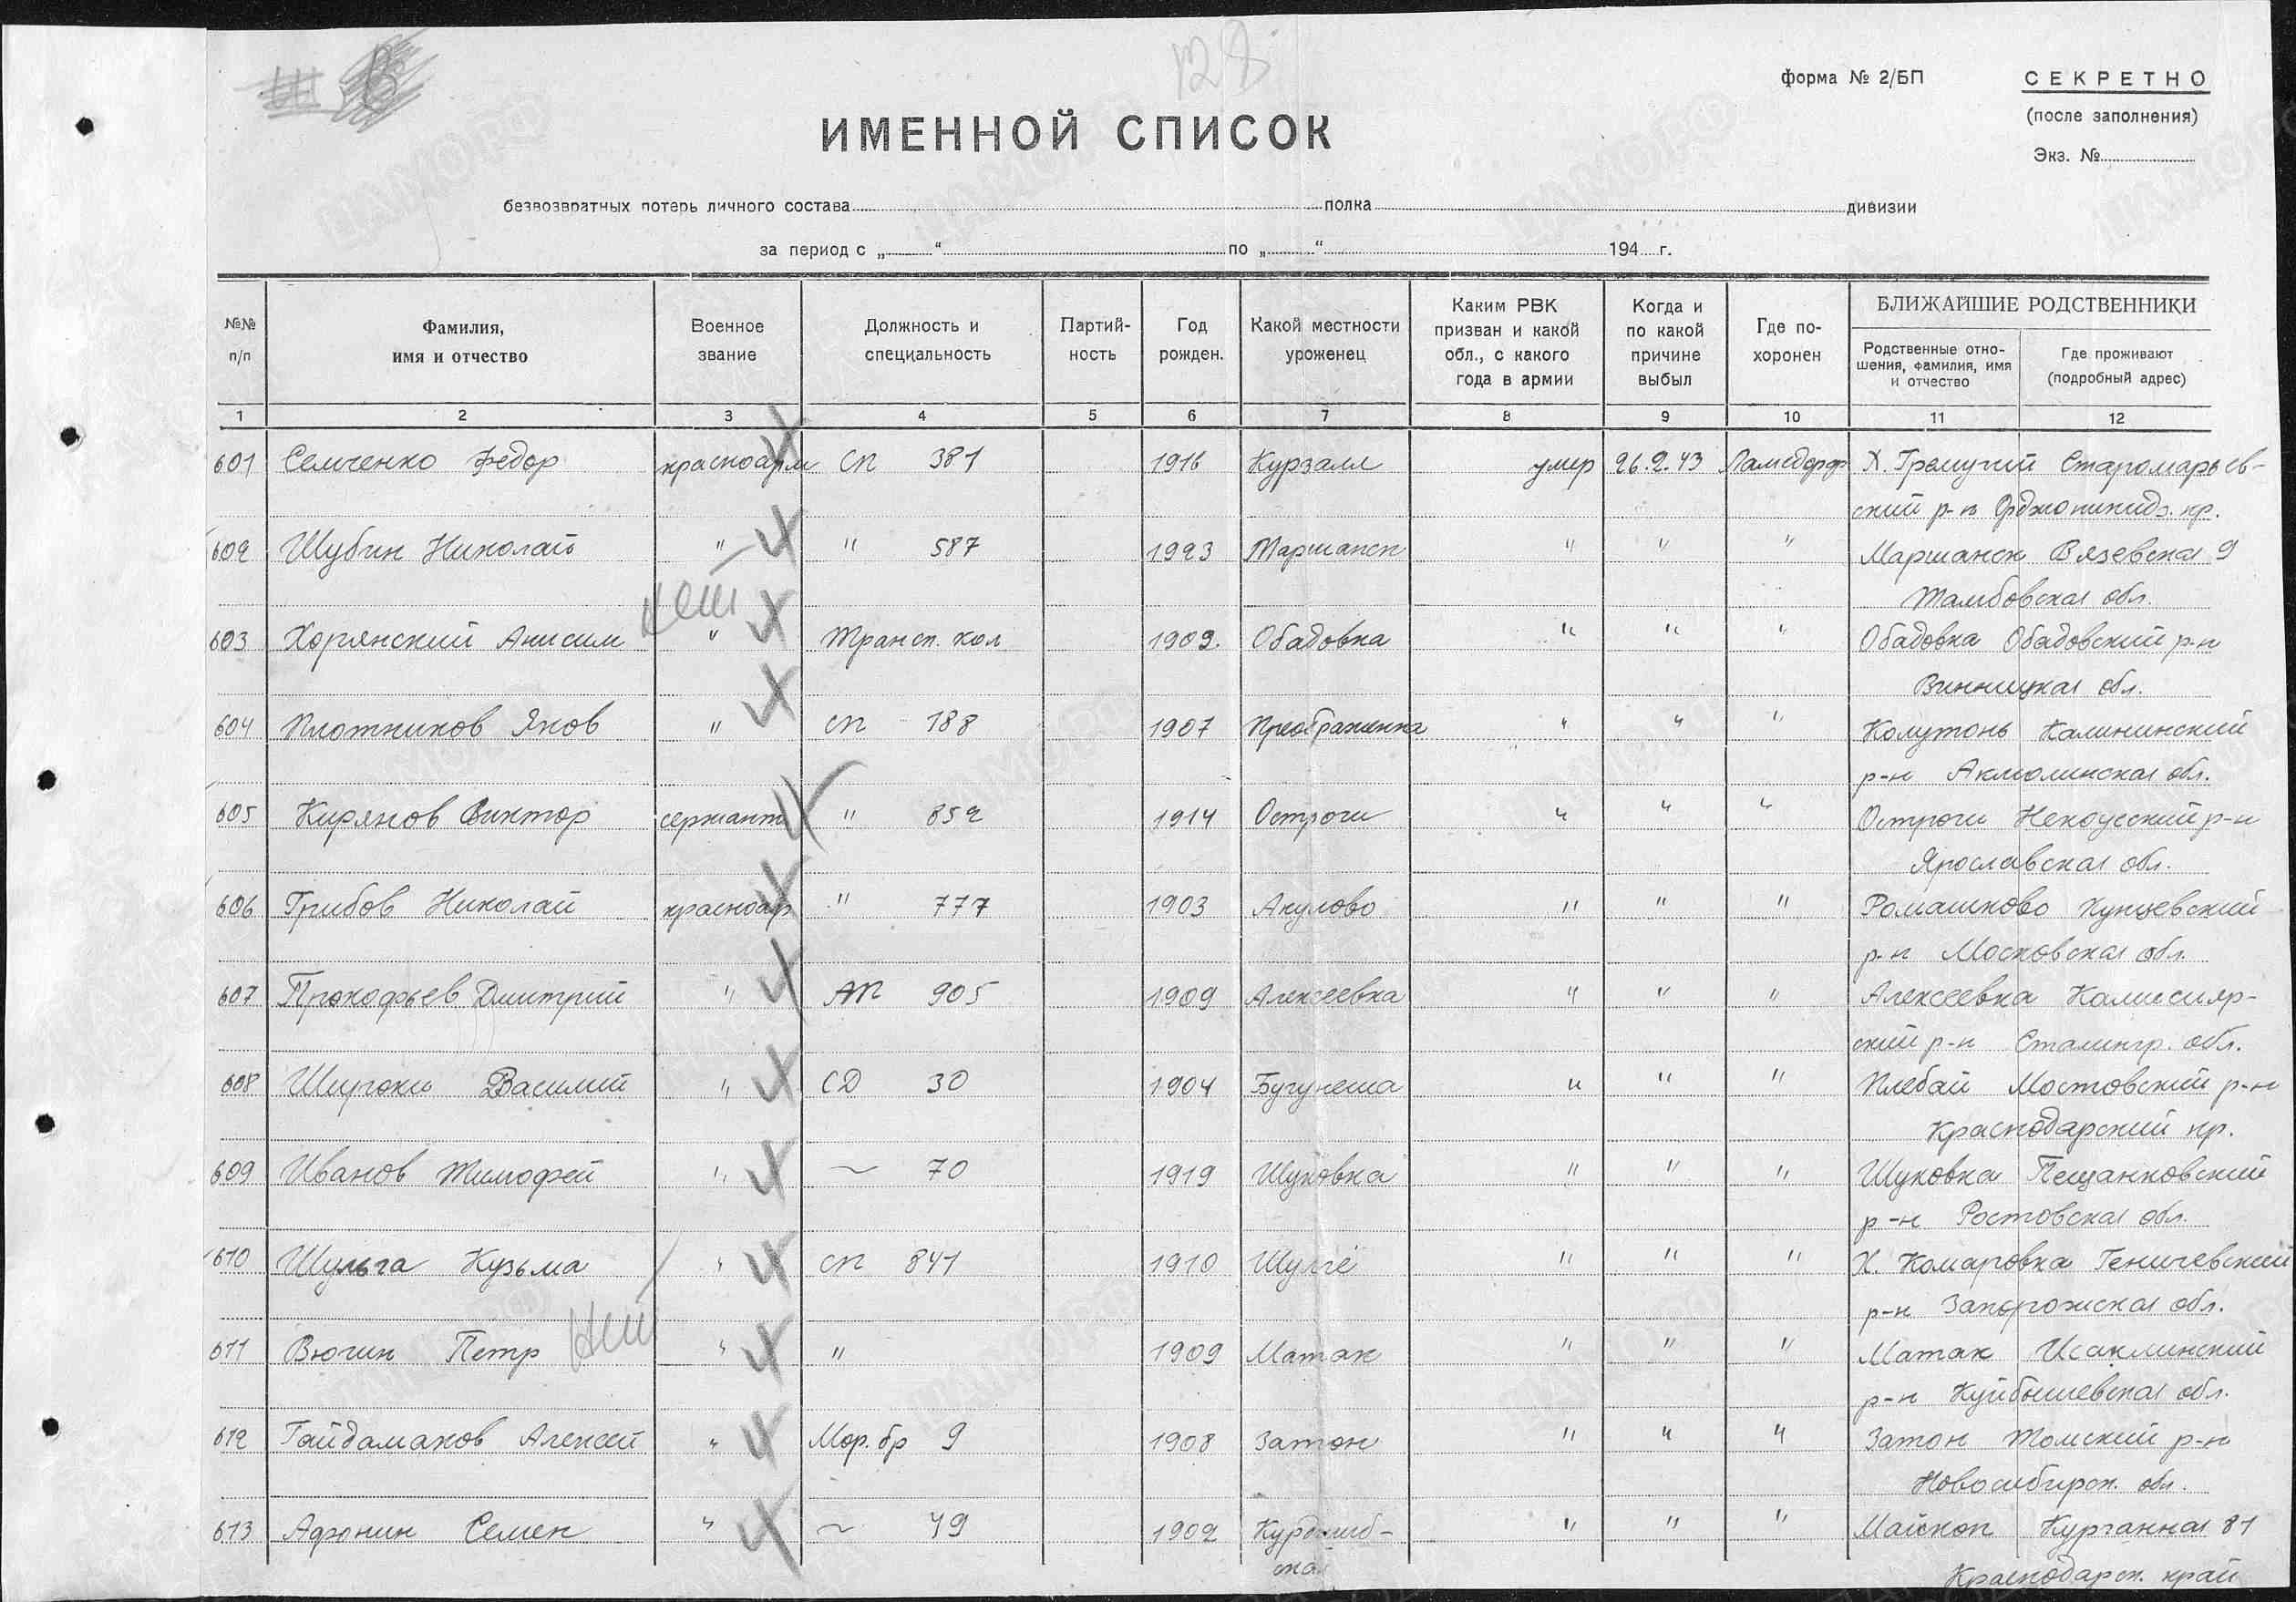 128
форма № 2/БП
СЕКРЕТНО
(после заполнения)
Экз. №
ИМЕННОЙ СПИСОК
безвозвратных потерь личного состава полка дивизии
за период с „ “ по „ “ 194 г.
№№ п/п
Фамилия, имя и отчество
Военное звание
Должность и специальность
Партий-ность
Год рожден.
Какой местности уроженец
Каким РВК призван и какой обл., с какого года в армии
Когда и по какой причине выбыл
Где по-хоронен
БЛИЖАЙШИЕ РОДСТВЕННИКИ
Родственные отно-шения, фамилия, имя и отчество
Где проживают (подробный адрес)
1 2 3 4 5 6 7 8 9 10 11 12
601 Семченко Федор красноарм СП 381 1916 Курзалл умер 26.2.43 Ламсдорф Х. Гремучий Старомарьев-
ский р-н Орджоникидз. кр.
602 Шубин Николай " " 587 1923 Маршанск " " " Маршанск Вязевская 9
Тамбовская обл.
603 Хорянский Анисим " Трансп. кол 1902. Ободовка " " " Ободовка Ободовский р-н
Винницкая обл.
604 Плотников Яков " СП 188 1907 Преображенка " " " Колутонь Калининский
р-н Акмолинская обл.
605 Кирянов Виктор сержант " 852 1914 Остроги " " " Остроги Некоузский р-н
Ярославская обл.
606 Грибов Николай красноар " 777 1903 Акулово " " " Ромашково Кунцевский
р-н Московская обл.
607 Прокофьев Дмитрий " АП 905 1909 Алексеевка " " " Алексеевка
ский р-н Сталингр. обл.
608 Широки Василий " СД 30 1904 " " " Плебай Мостовский р-н
Краснодарский кр.
609 Иванов Тимофей " ~ 70 1919 Шуковка " " " Шуковка Пещанковский
р-н Ростовская обл.
610 Шульга Кузьма " СП 841 1910 " " " Х. Комаровка Геничевский
р-н Запорожская обл.
611 Вюгин Петр " " 1909 Матак " " " Матак Исаклинский
р-н Куйбышевская обл.
612 Гайдамаков Алексей " Мор. бр 9 1908 Затон " " " Затон Томский р-н
Новосибирск. обл.
613 Афонин Семен " ~ 49 1902 " " " Майкоп Курганная 81
Краснодарск. край